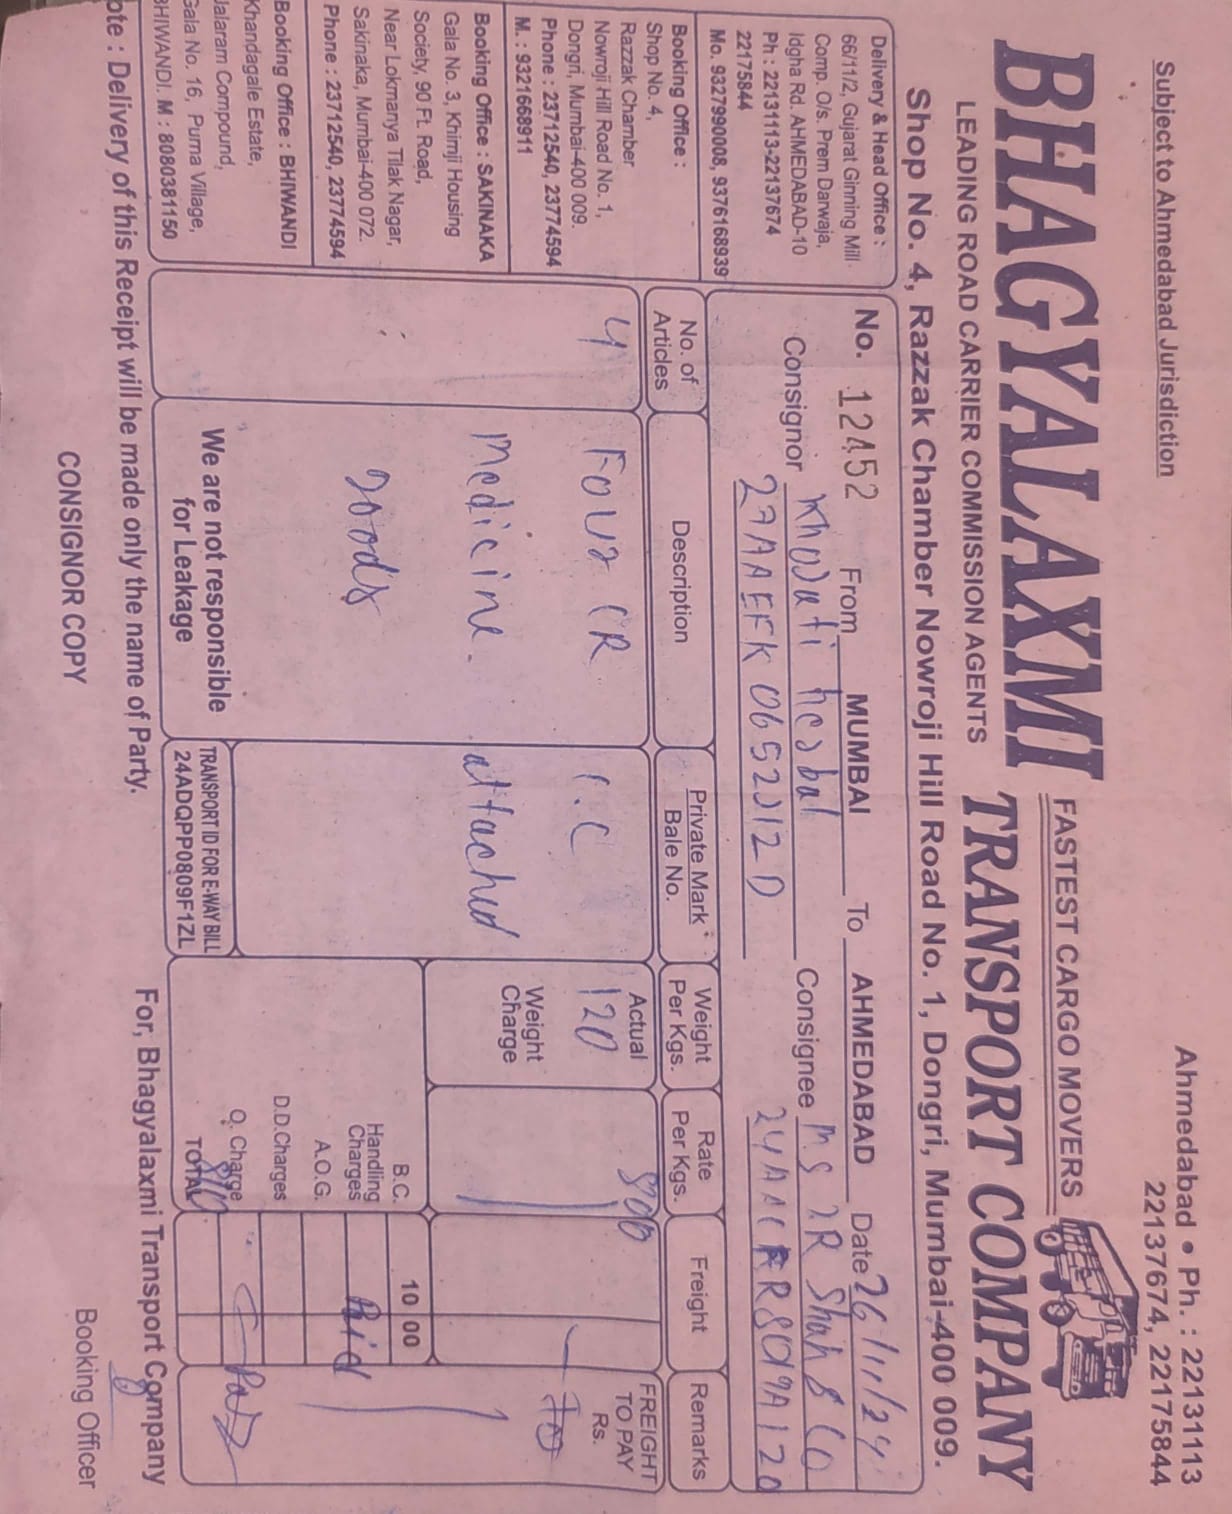 Subject to Ahmedabad Jurisdiction
Ahmedabad • Ph. : 22131113
22137674, 22175844
BHAGYALAXMI
FASTEST CARGO MOVERS
TRANSPORT COMPANY
LEADING ROAD CARRIER COMMISSION AGENTS
Shop No. 4, Razzak Chamber Nowroji Hill Road No. 1, Dongri, Mumbai-400 009.
Delivery & Head Office :
66/11/2, Gujarat Ginning Mill
Comp. O/s. Prem Darwaja,
Idgha Rd. AHMEDABAD-10
Ph : 22131113-22137674
22175844
Mo. 9327990008, 9376168939
Booking Office :
Shop No. 4,
Razzak Chamber
Nowroji Hill Road No. 1,
Dongri, Mumbai-400 009.
Phone : 23712540, 23774594
M. : 9321668911
Booking Office : SAKINAKA
Gala No. 3, Khimji Housing
Society, 90 Ft. Road,
Near Lokmanya Tilak Nagar,
Sakinaka, Mumbai-400 072.
Phone : 23712540, 23774594
Booking Office : BHIWANDI
Khandagale Estate,
Jalaram Compound,
Gala No. 16, Purna Village,
BHIWANDI. M : 8080381150
No. 12452 From MUMBAI To AHMEDABAD Date 26/11/24
Consignor Khovati herbal Consignee M S R Shah & Co
No. of Articles
Description
Private Mark
Bale No.
Weight Per Kgs.
Rate Per Kgs.
Freight
Remarks
4
Four CR
Medicine.
goods
I.C
attached
Actual
120
Weight Charge
800
FREIGHT TO PAY Rs.
B.C. 10 00
Handling Charges
Paid
A.O.G.
D.D.Charges
Q. Charge
TOTAL
810
We are not responsible
for Leakage
TRANSPORT ID FOR E-WAY BILL
24ADQPP0809F1ZL
ote : Delivery of this Receipt will be made only the name of Party.
For, Bhagyalaxmi Transport Company
CONSIGNOR COPY
Booking Officer